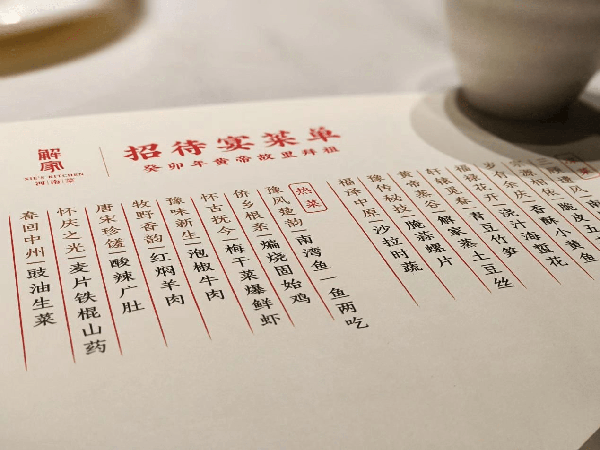 解厨
XIE'S KITCHEN
河南菜
招待宴菜单
癸卯年黄帝故里拜祖
脆皮五
岁有余庆|香酥小黄鱼
福禄花开|浇汁海蜇花
轩辕觅春|青豆竹笋
黄帝蒸谷|解家蒸土豆丝
豫传秘技|脆蒜螺片
福泽中原|沙拉时蔬
热菜
豫风楚韵|南湾鱼一鱼两吃
侨乡根系|煸烧固始鸡
怀古抚今|梅干菜爆鲜虾
豫味新生|泡椒牛肉
牧野香韵|红焖羊肉
唐宋珍馐|酸辣广肚
怀庆之光|麦片铁棍山药
春回中州|豉油生菜